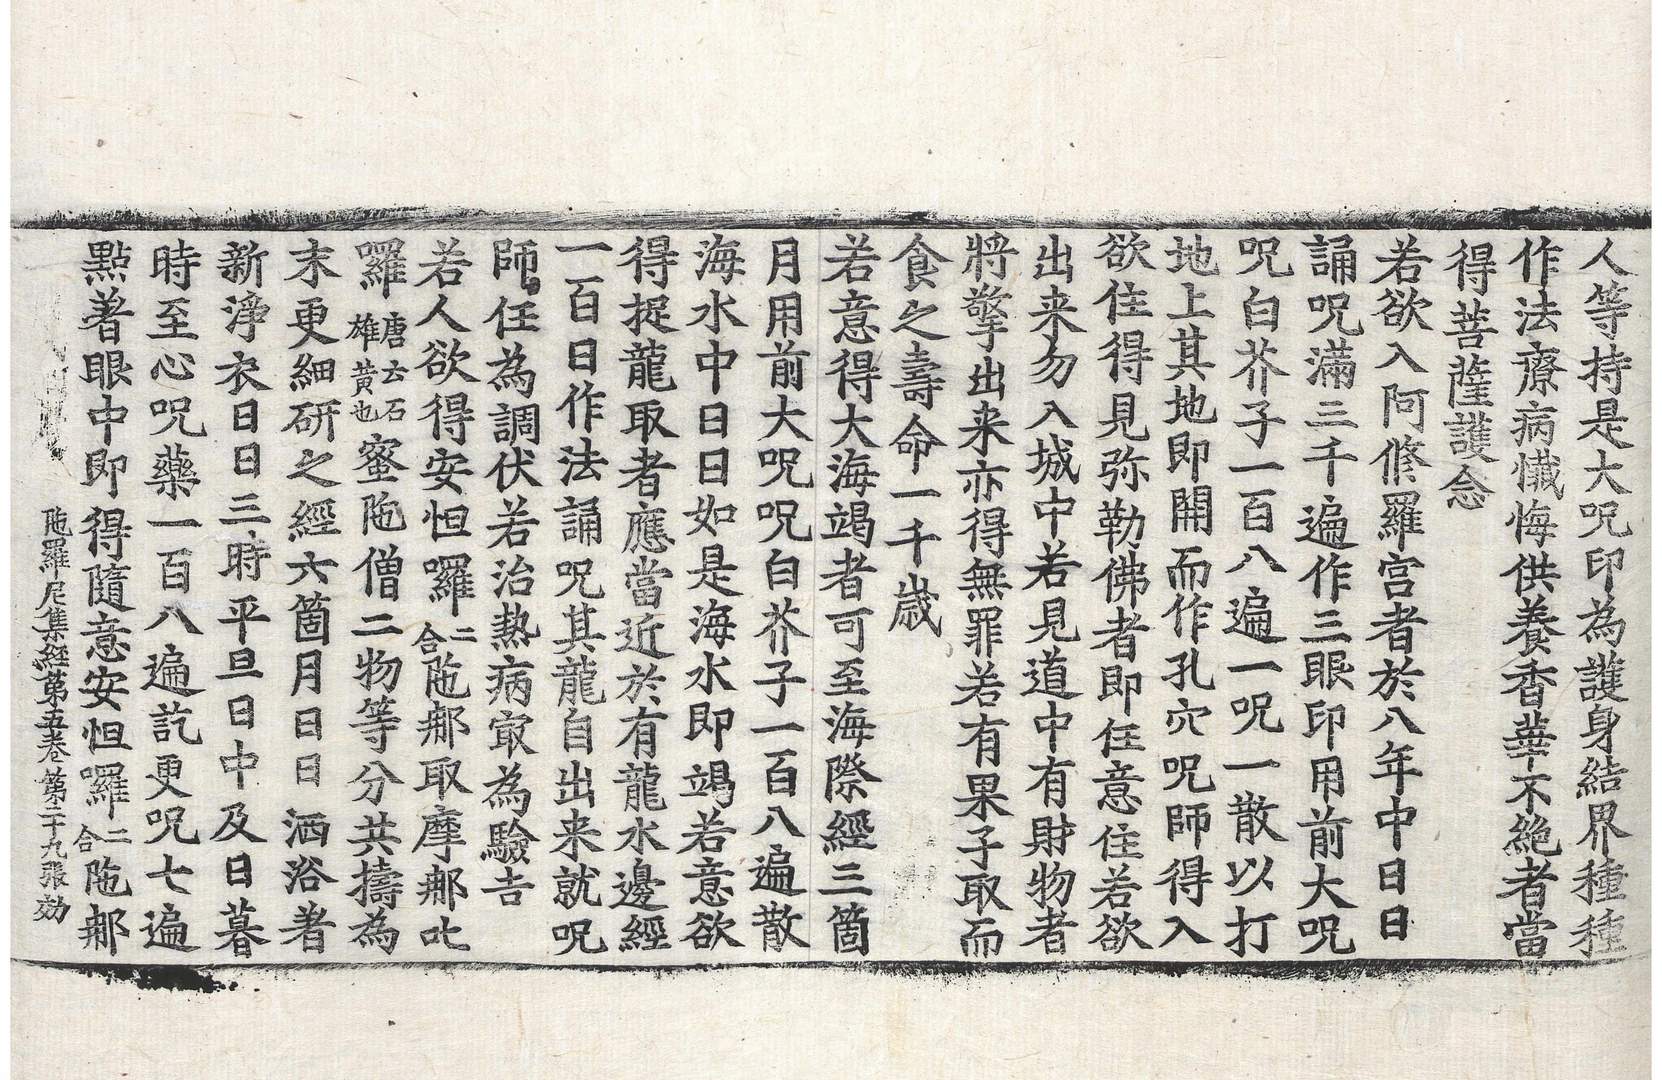 人等持是大呪印為護身結界種種
作法療病懺悔供養香華不絶者當
得菩薩護念
若欲入阿修羅宮者於八年中日日
誦呪滿三千遍作三眼印用前大呪
呪白芥子一百八遍一呪一散以打
地上其地即開而作孔穴呪師得入
欲住得見弥勒佛者即任意住若欲
出来勿入城中若見道中有財物者
將擎出来亦得無罪若有果子取而
食之壽命一千歲
若意得大海竭者可至海際經三箇
月用前大呪呪白芥子一百八遍散
海水中日日如是海水即竭若意欲
得捉龍取者應當近於有龍水邊經
一百日作法誦呪其龍自出来就呪
師任為調伏若治熱病㝡為驗吉
若人欲得安怛囉二合陁郍取摩郍叱
囉唐云石雄黃也蜜陁僧二物等分共擣為
末更細研之經六箇月日日洒浴著
新淨衣日日三時平旦日中及日暮
時至心呪藥一百八遍訖更呪七遍
點著眼中即得隨意安怛囉二合陁郍
陁羅尼集經第五卷第二十九張効